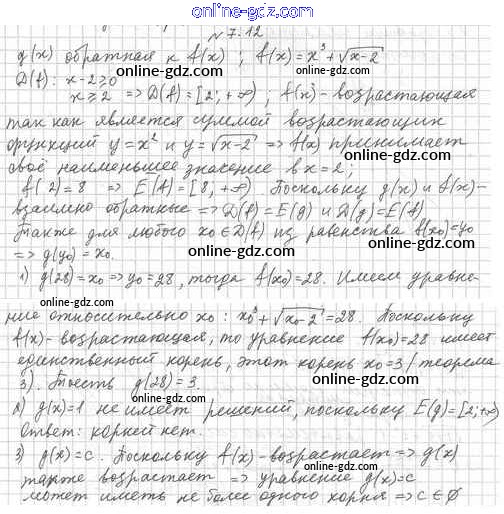 online-gdz.com
№ 7.12
g(x) обратная к f(x) ; f(x) = x³ + √x-2
D(f): x-2≥0
x ≥ 2 ⇒ D(f) = [2; +∞) ; f(x) - возрастающая
так как является суммой возрастающих
функций y = x² и y = √x-2 ⇒ f(x) принимает
своё наименьшее значение в x = 2;
f(2) = 8 ⇒ E(f) = [8, +∞). Поскольку g(x) и f(x) -
взаимно обратные ⇒ D(f) = E(g) и D(g) = E(f)
Также для любого x₀∈D(f) из равенства f(x₀)=y₀
⇒ g(y₀) = x₀.
1) g(28) = x₀ ⇒ y₀ = 28, тогда f(x₀) = 28. Имеем уравне-
ние относительно x₀ : x₀³ + √x₀-2 = 28. Поскольку
f(x) - возрастающая, то уравнение f(x₀) = 28 имеет
единственный корень, этот корень x₀ = 3 / теорема
3). Тоесть g(28) = 3.
2) g(x) = 1 не имеет решений, поскольку E(g) = [2; +∞)
Ответ: корней нет.
3) g(x) = c. Поскольку f(x) - возрастает ⇒ g(x)
также возрастает ⇒ уравнение g(x) = c
может иметь не более одного корня ⇒ c ∈ ∅
online-gdz.com